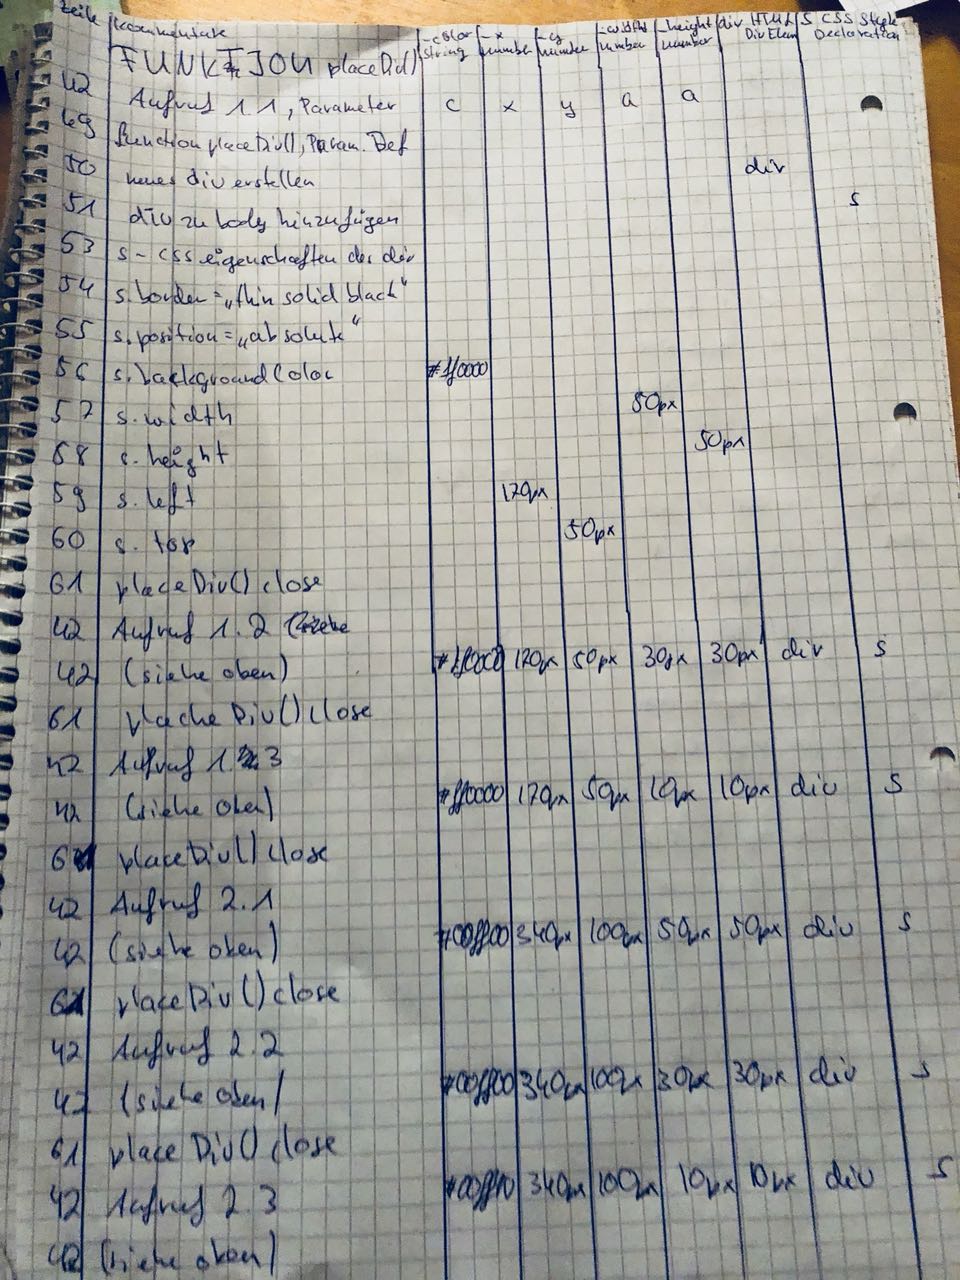 Zeile Kommentare _color string _x number _y number _width number _height number div HTML Div Elem S CSS Style Declaration
FUNKTION placeDiv()
42 Aufruf 1.1, Parameter c x y a a
49 function placeDiv(), Param. Def
50 neues div erstellen div
51 div zu body hinzufügen s
53 s - CSS eigenschaften des div
54 s.border = "thin solid black"
55 s.position = "absolute"
56 s.backgroundColor #ff0000
57 s.width 50px
58 s.height 50px
59 s.left 170px
60 s.top 50px
61 placeDiv() close
42 Aufruf 1.2
42 (siehe oben) #ff0000 170px 50px 30px 30px div s
61 plache Div() close
42 Aufruf 1.3
42 (siehe oben) #ff0000 170px 50px 10px 10px div s
61 placeDiv() close
42 Aufruf 2.1
42 (siehe oben) #00ff00 340px 100px 50px 50px div s
61 placeDiv() close
42 Aufruf 2.2
42 (siehe oben) #00ff00 340px 100px 30px 30px div s
61 place Div() close
42 Aufruf 2.3 #00ff00 340px 100px 10px 10px div s
42 (siehe oben)